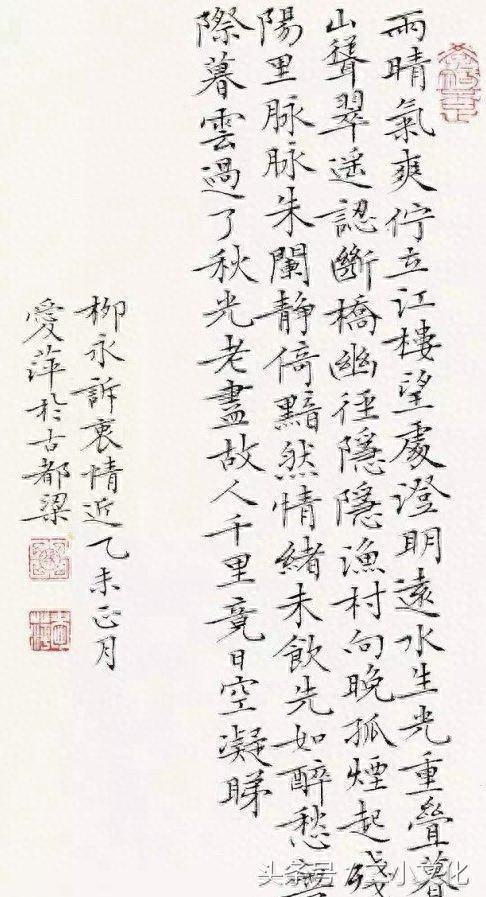 雨晴氣爽佇立江樓望處澄明遠水生光重疊暮
山聳翠遥認斷橋幽徑隱隱漁村向晚孤煙起殘
陽里脉脉朱闌静倚黯然情緒未飲先如醉愁無
際暮雲過了秋光老盡故人千里竟日空凝睇
柳永訴衷情近乙未正月
愛萍於古都梁
头条号